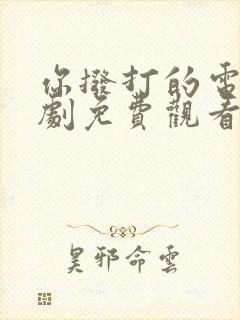 你撥打的電
劇免費觀看
昊邪命雲